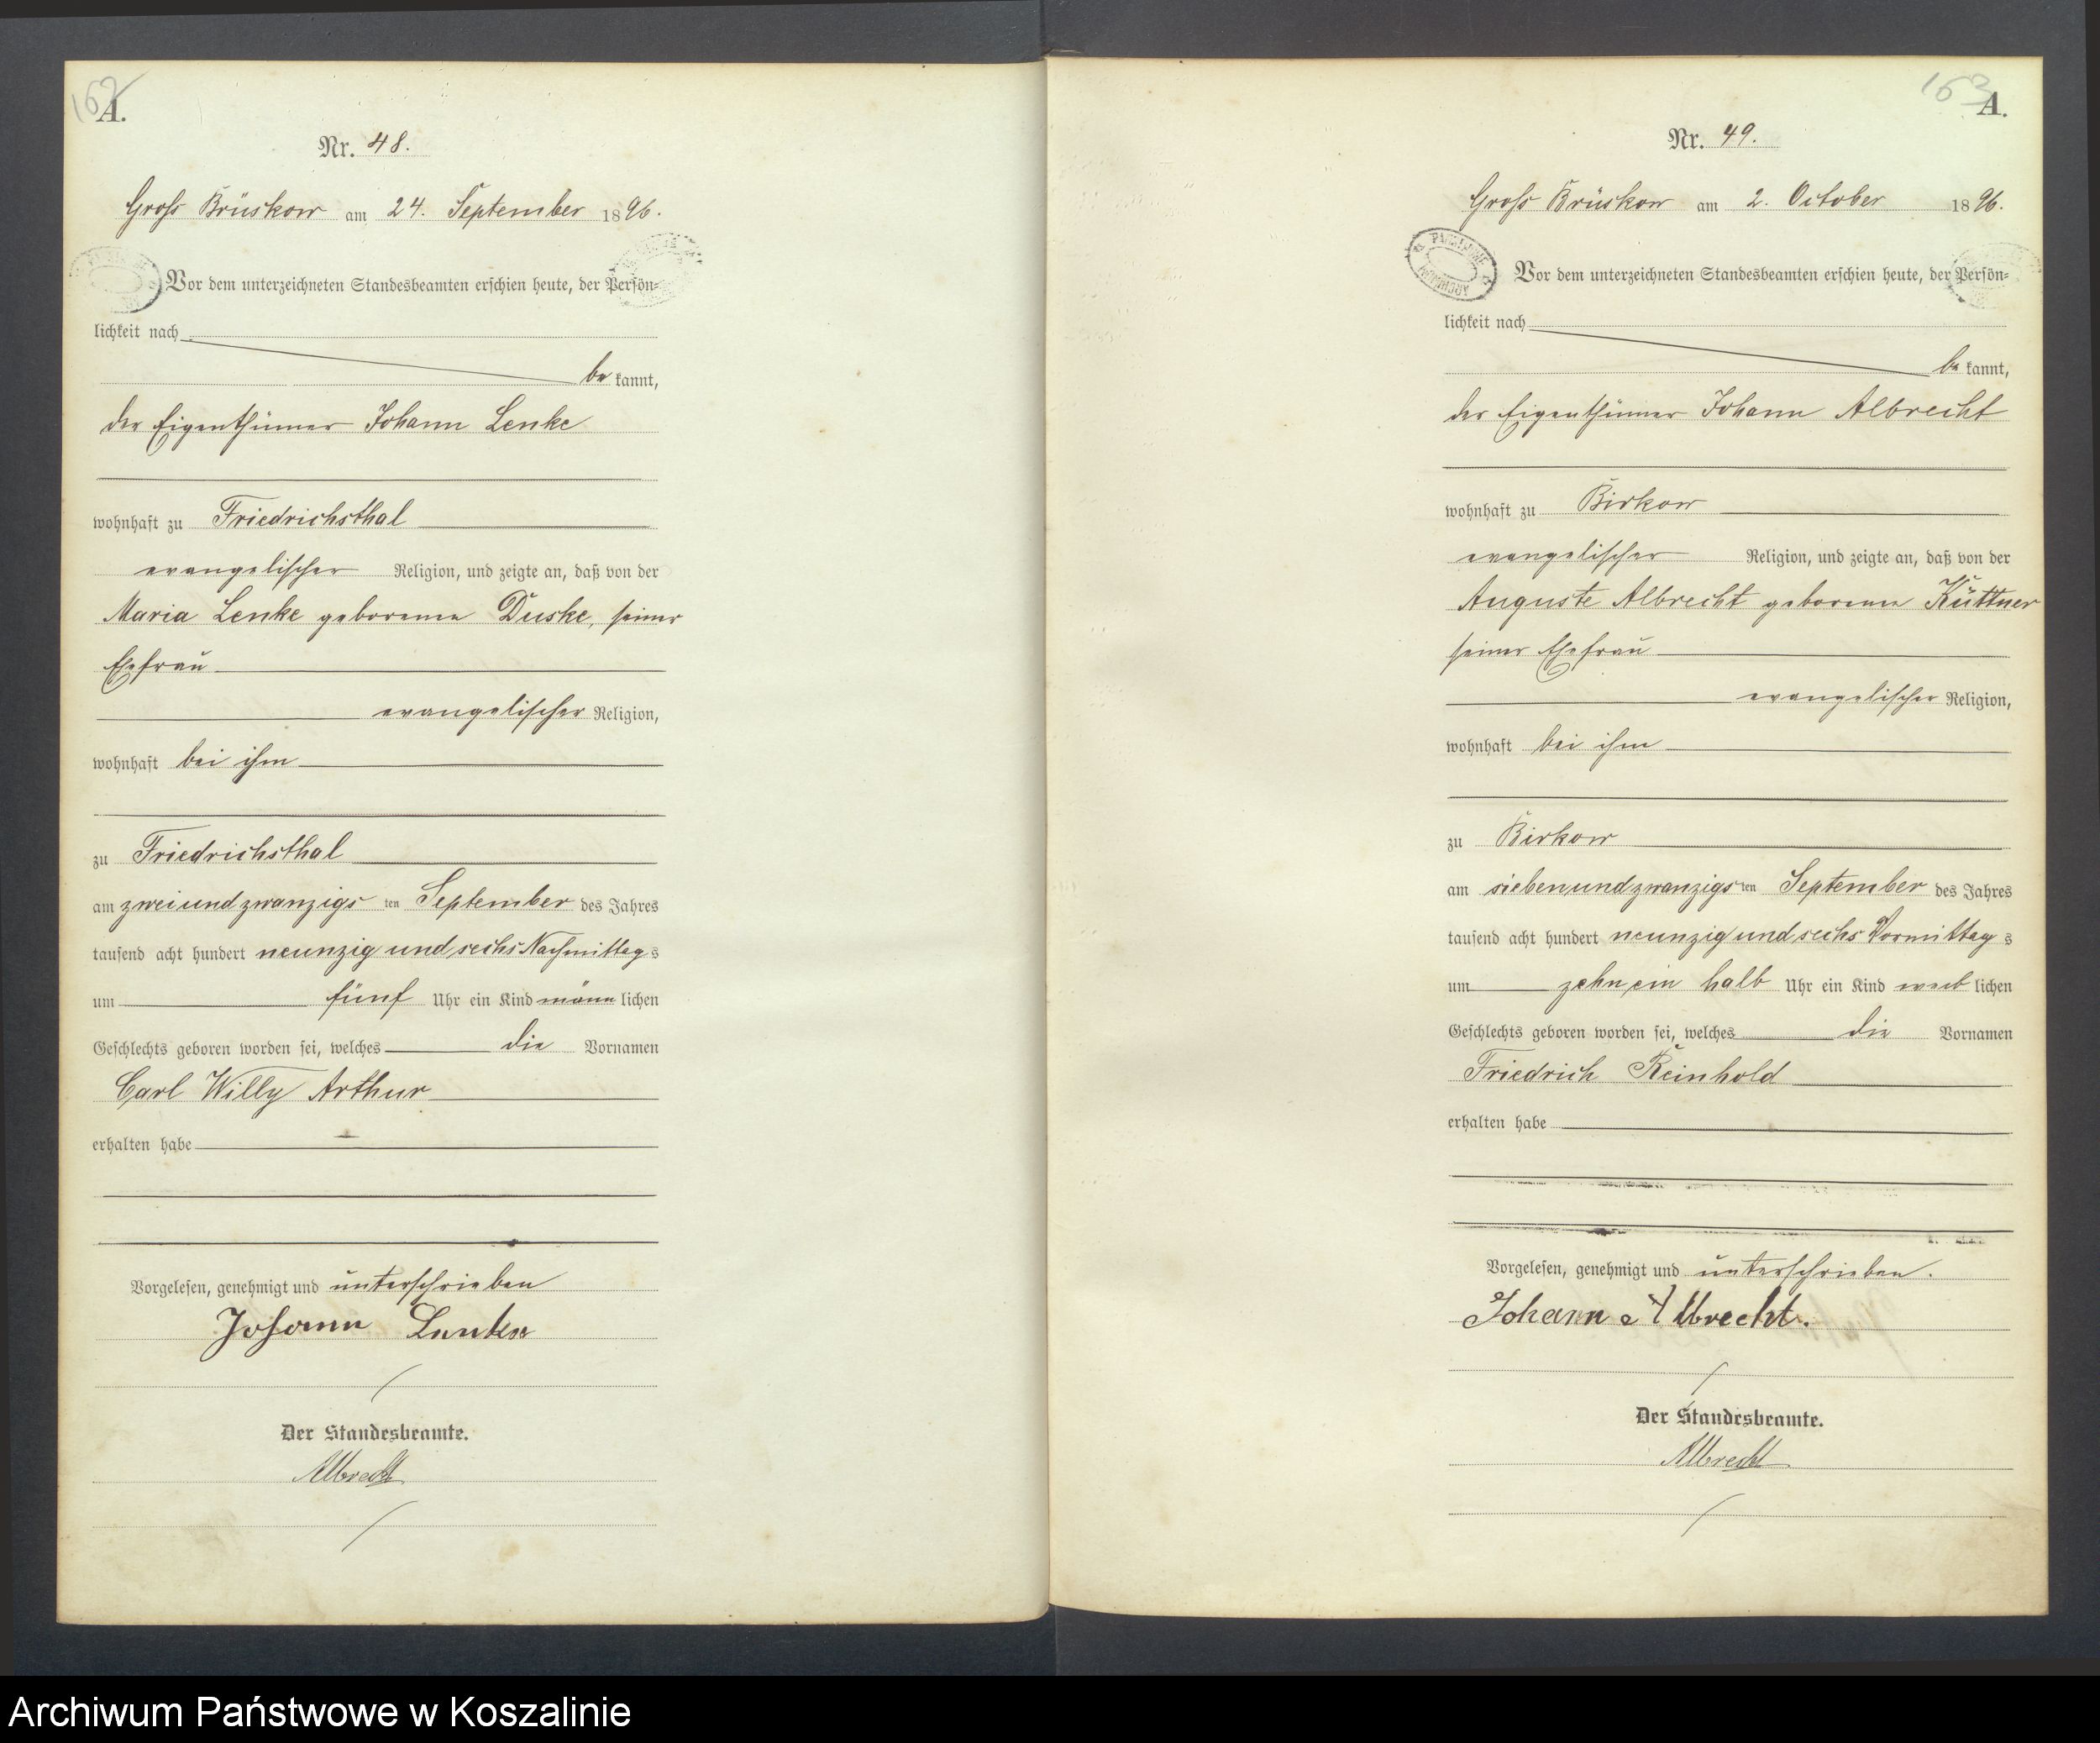 162
A.
Nr. 48.
Gross Brüskow am 24. September 1896.
Vor dem unterzeichneten Standesbeamten erschien heute, der Persön-
lichkeit nach
be kannt,
der Eigenthümer Johann Lenke
wohnhaft zu Friedrichsthal
evangelischer Religion, und zeigte an, daß von der
Maria Lenke geborenen Duske, seiner
Ehefrau
evangelischer Religion,
wohnhaft bei ihm
zu Friedrichsthal
am zweiundzwanzigs ten September des Jahres
tausend acht hundert neunzig und sechs Nachmittag s
um fünf Uhr ein Kind männ lichen
Geschlechts geboren worden sei, welches die Vornamen
Carl Willy Arthur
erhalten habe
Vorgelesen, genehmigt und unterschrieben
Johann Lenke
Der Standesbeamte.
Albrecht
163
A.
Nr. 49.
Gross Brüskow am 2. October 1896.
PAŃSTWOWE ARCHIWUM
Vor dem unterzeichneten Standesbeamten erschien heute, der Persön-
lichkeit nach
be kannt,
der Eigenthümer Johann Albrecht
wohnhaft zu Birkow
evangelischer Religion, und zeigte an, daß von der
Auguste Albrecht geborenen Küttner
seiner Ehefrau
evangelischer Religion,
wohnhaft bei ihm
zu Birkow
am siebenundzwanzigs ten September des Jahres
tausend acht hundert neunzig und sechs Vormittag s
um zehn ein halb Uhr ein Kind lichen
Geschlechts geboren worden sei, welches die Vornamen
Friedrich Reinhold
erhalten habe
Vorgelesen, genehmigt und unterschrieben.
Johann Albrecht.
Der Standesbeamte.
Albrecht
Archiwum Państwowe w Koszalinie